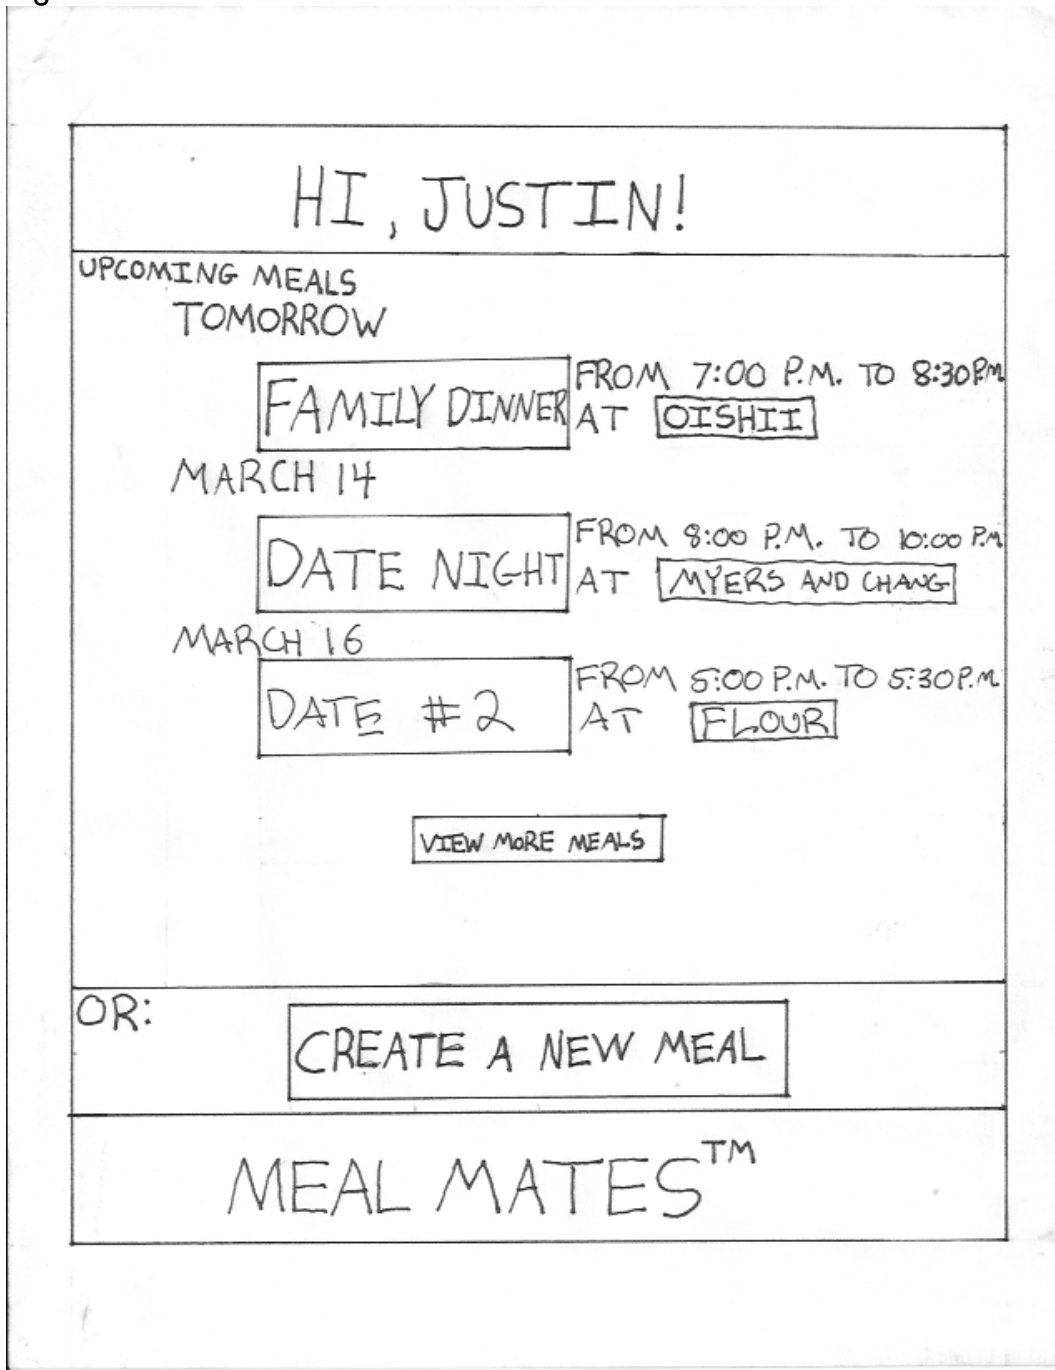 HI, JUSTIN!
UPCOMING MEALS
TOMORROW
FAMILY DINNER
FROM 7:00 P.M. TO 8:30 P.M
AT OISHII
MARCH 14
DATE NIGHT
FROM 8:00 P.M. TO 10:00 P.M
AT MYERS AND CHANG
MARCH 16
DATE #2
FROM 5:00 P.M. TO 5:30 P.M.
AT FLOUR
VIEW MORE MEALS
OR:
CREATE A NEW MEAL
MEAL MATES™